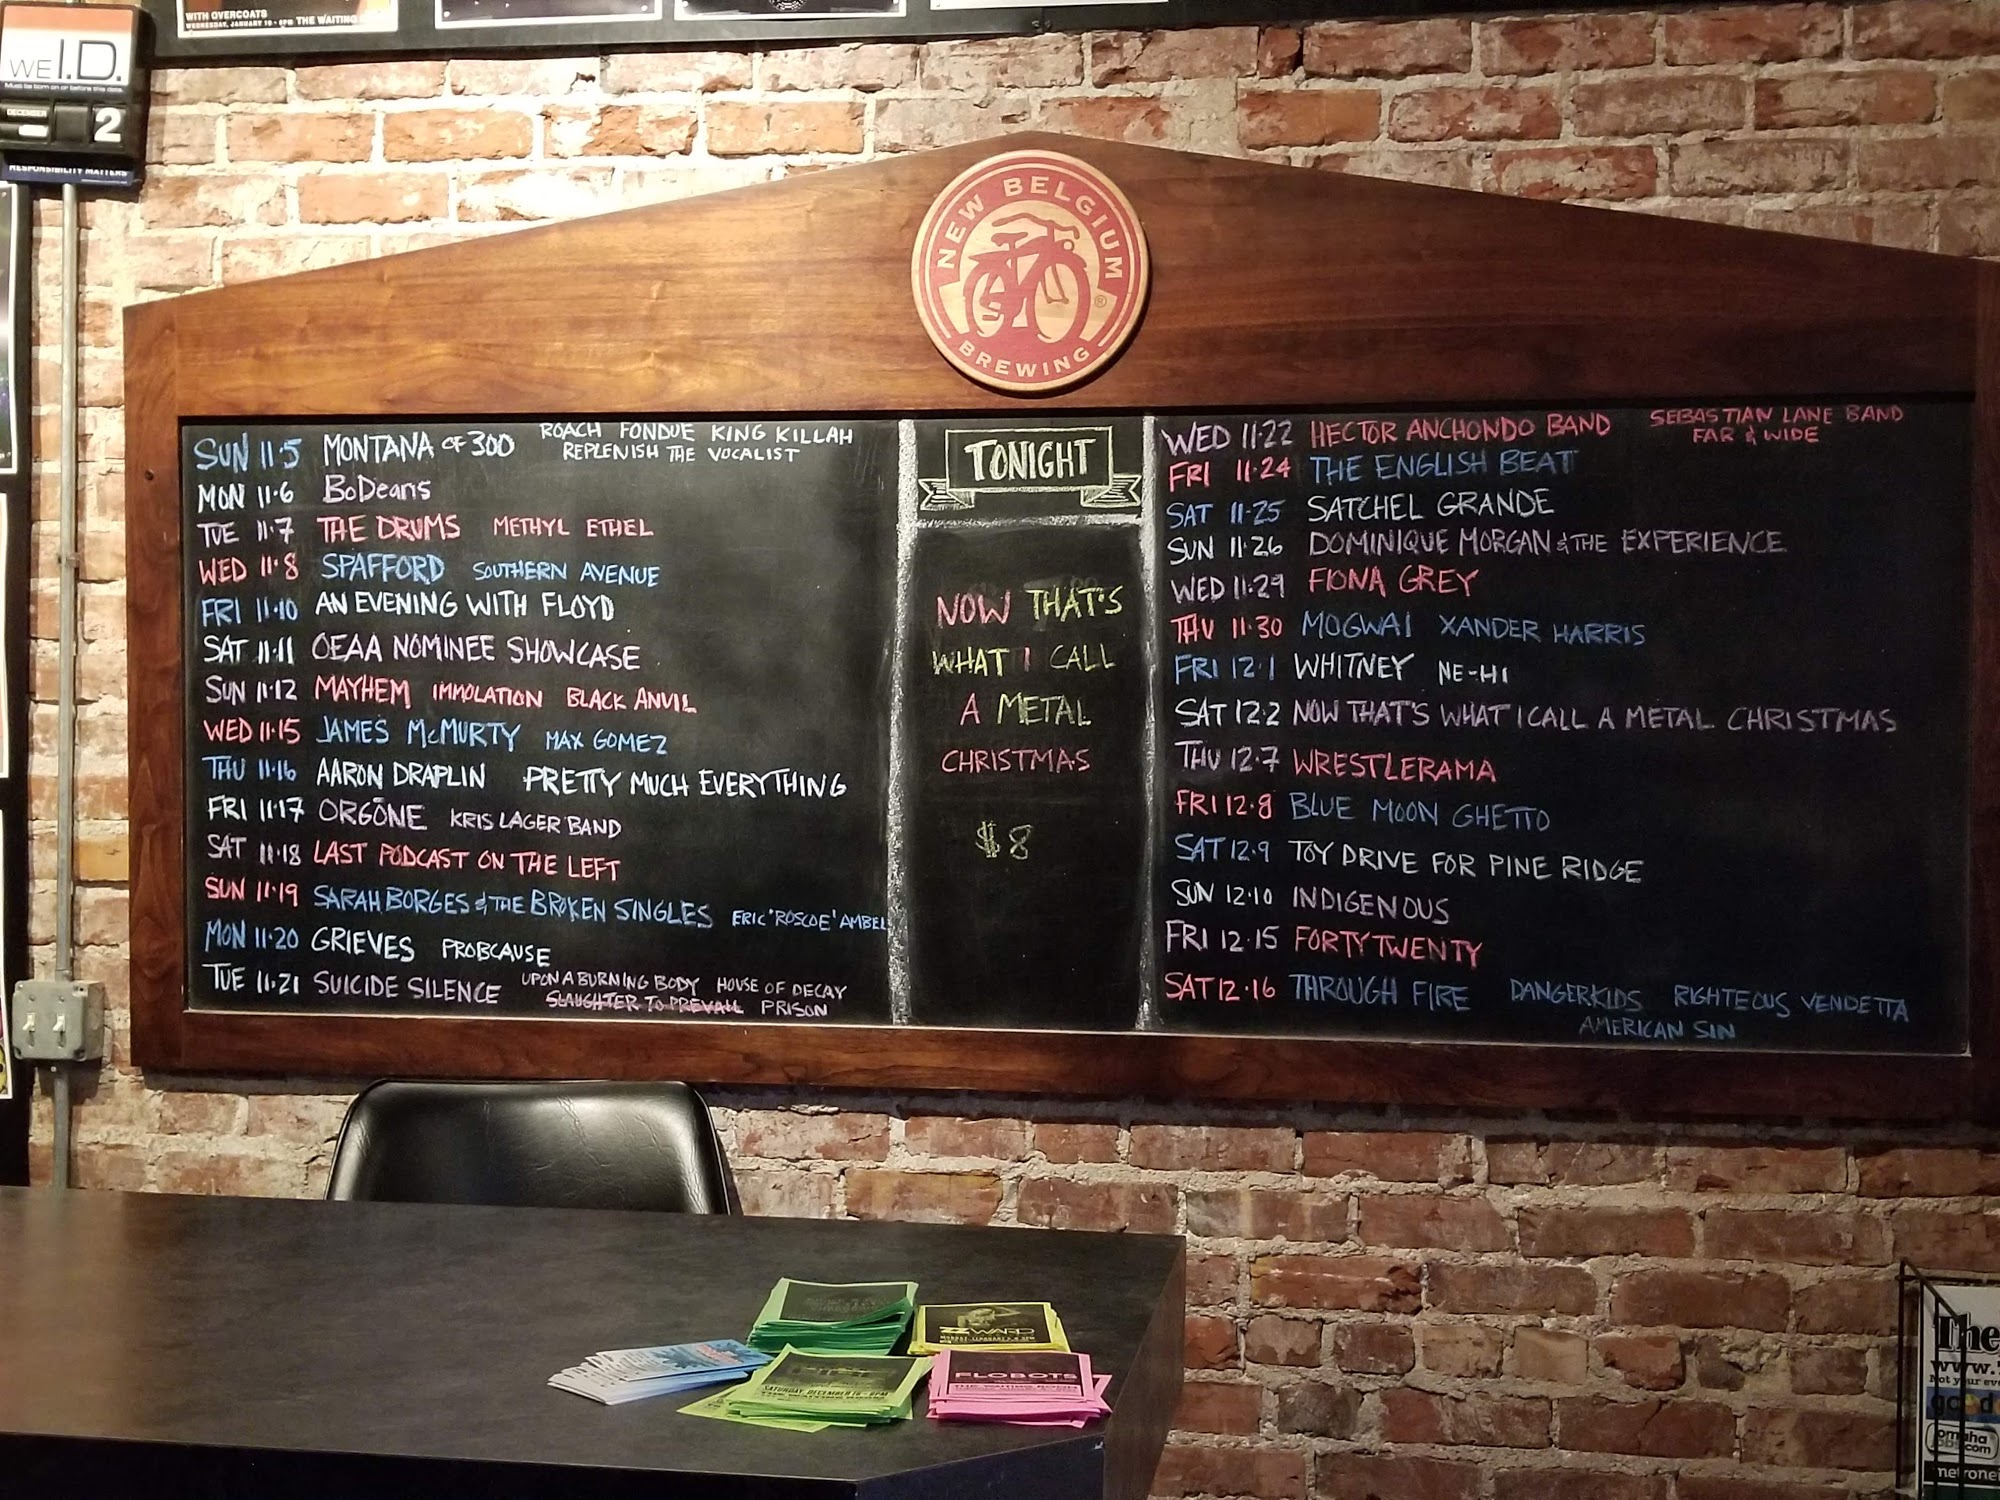 WITH OVERCOATS
WEDNESDAY, JANUARY 10 - 8PM THE WAITING
WE I.D.
Must be born on or before this date.
DECEMBER
2
RESPONSIBILITY MATTERS
NEW BELGIUM
BREWING
®
SUN 11·5 MONTANA OF 300 ROACH FONDUE KING KILLAH
REPLENISH THE VOCALIST
MON 11·6 BoDeans
TUE 11·7 THE DRUMS METHYL ETHEL
WED 11·8 SPAFFORD SOUTHERN AVENUE
FRI 11·10 AN EVENING WITH FLOYD
SAT 11·11 OEAA NOMINEE SHOWCASE
SUN 11·12 MAYHEM IMMOLATION BLACK ANVIL
WED 11·15 JAMES McMURTY MAX GOMEZ
THU 11·16 AARON DRAPLIN PRETTY MUCH EVERYTHING
FRI 11·17 ORGŌNE KRIS LAGER BAND
SAT 11·18 LAST PODCAST ON THE LEFT
SUN 11·19 SARAH BORGES & THE BROKEN SINGLES ERIC "ROSCOE" AMBEL
MON 11·20 GRIEVES PROBCAUSE
TUE 11·21 SUICIDE SILENCE UPON A BURNING BODY HOUSE OF DECAY
SLAUGHTER TO PREVAIL PRISON
TONIGHT
NOW THAT'S
WHAT I CALL
A METAL
CHRISTMAS
$8
WED 11·22 HECTOR ANCHONDO BAND SEBASTIAN LANE BAND
FAR & WIDE
FRI 11·24 THE ENGLISH BEAT
SAT 11·25 SATCHEL GRANDE
SUN 11·26 DOMINIQUE MORGAN & THE EXPERIENCE
WED 11·29 FIONA GREY
THU 11·30 MOGWAI XANDER HARRIS
FRI 12·1 WHITNEY NE-HI
SAT 12·2 NOW THAT'S WHAT I CALL A METAL CHRISTMAS
THU 12·7 WRESTLERAMA
FRI 12·8 BLUE MOON GHETTO
SAT 12·9 TOY DRIVE FOR PINE RIDGE
SUN 12·10 INDIGENOUS
FRI 12·15 FORTYTWENTY
SAT 12·16 THROUGH FIRE DANGERKIDS RIGHTEOUS VENDETTA
AMERICAN SIN
ZZ WARD
SATURDAY, DECEMBER 16 - 8PM
FLOBOTS
THE WAITING ROOM
The
www.
Not your eve
good
omaha
jobs.com
metronei